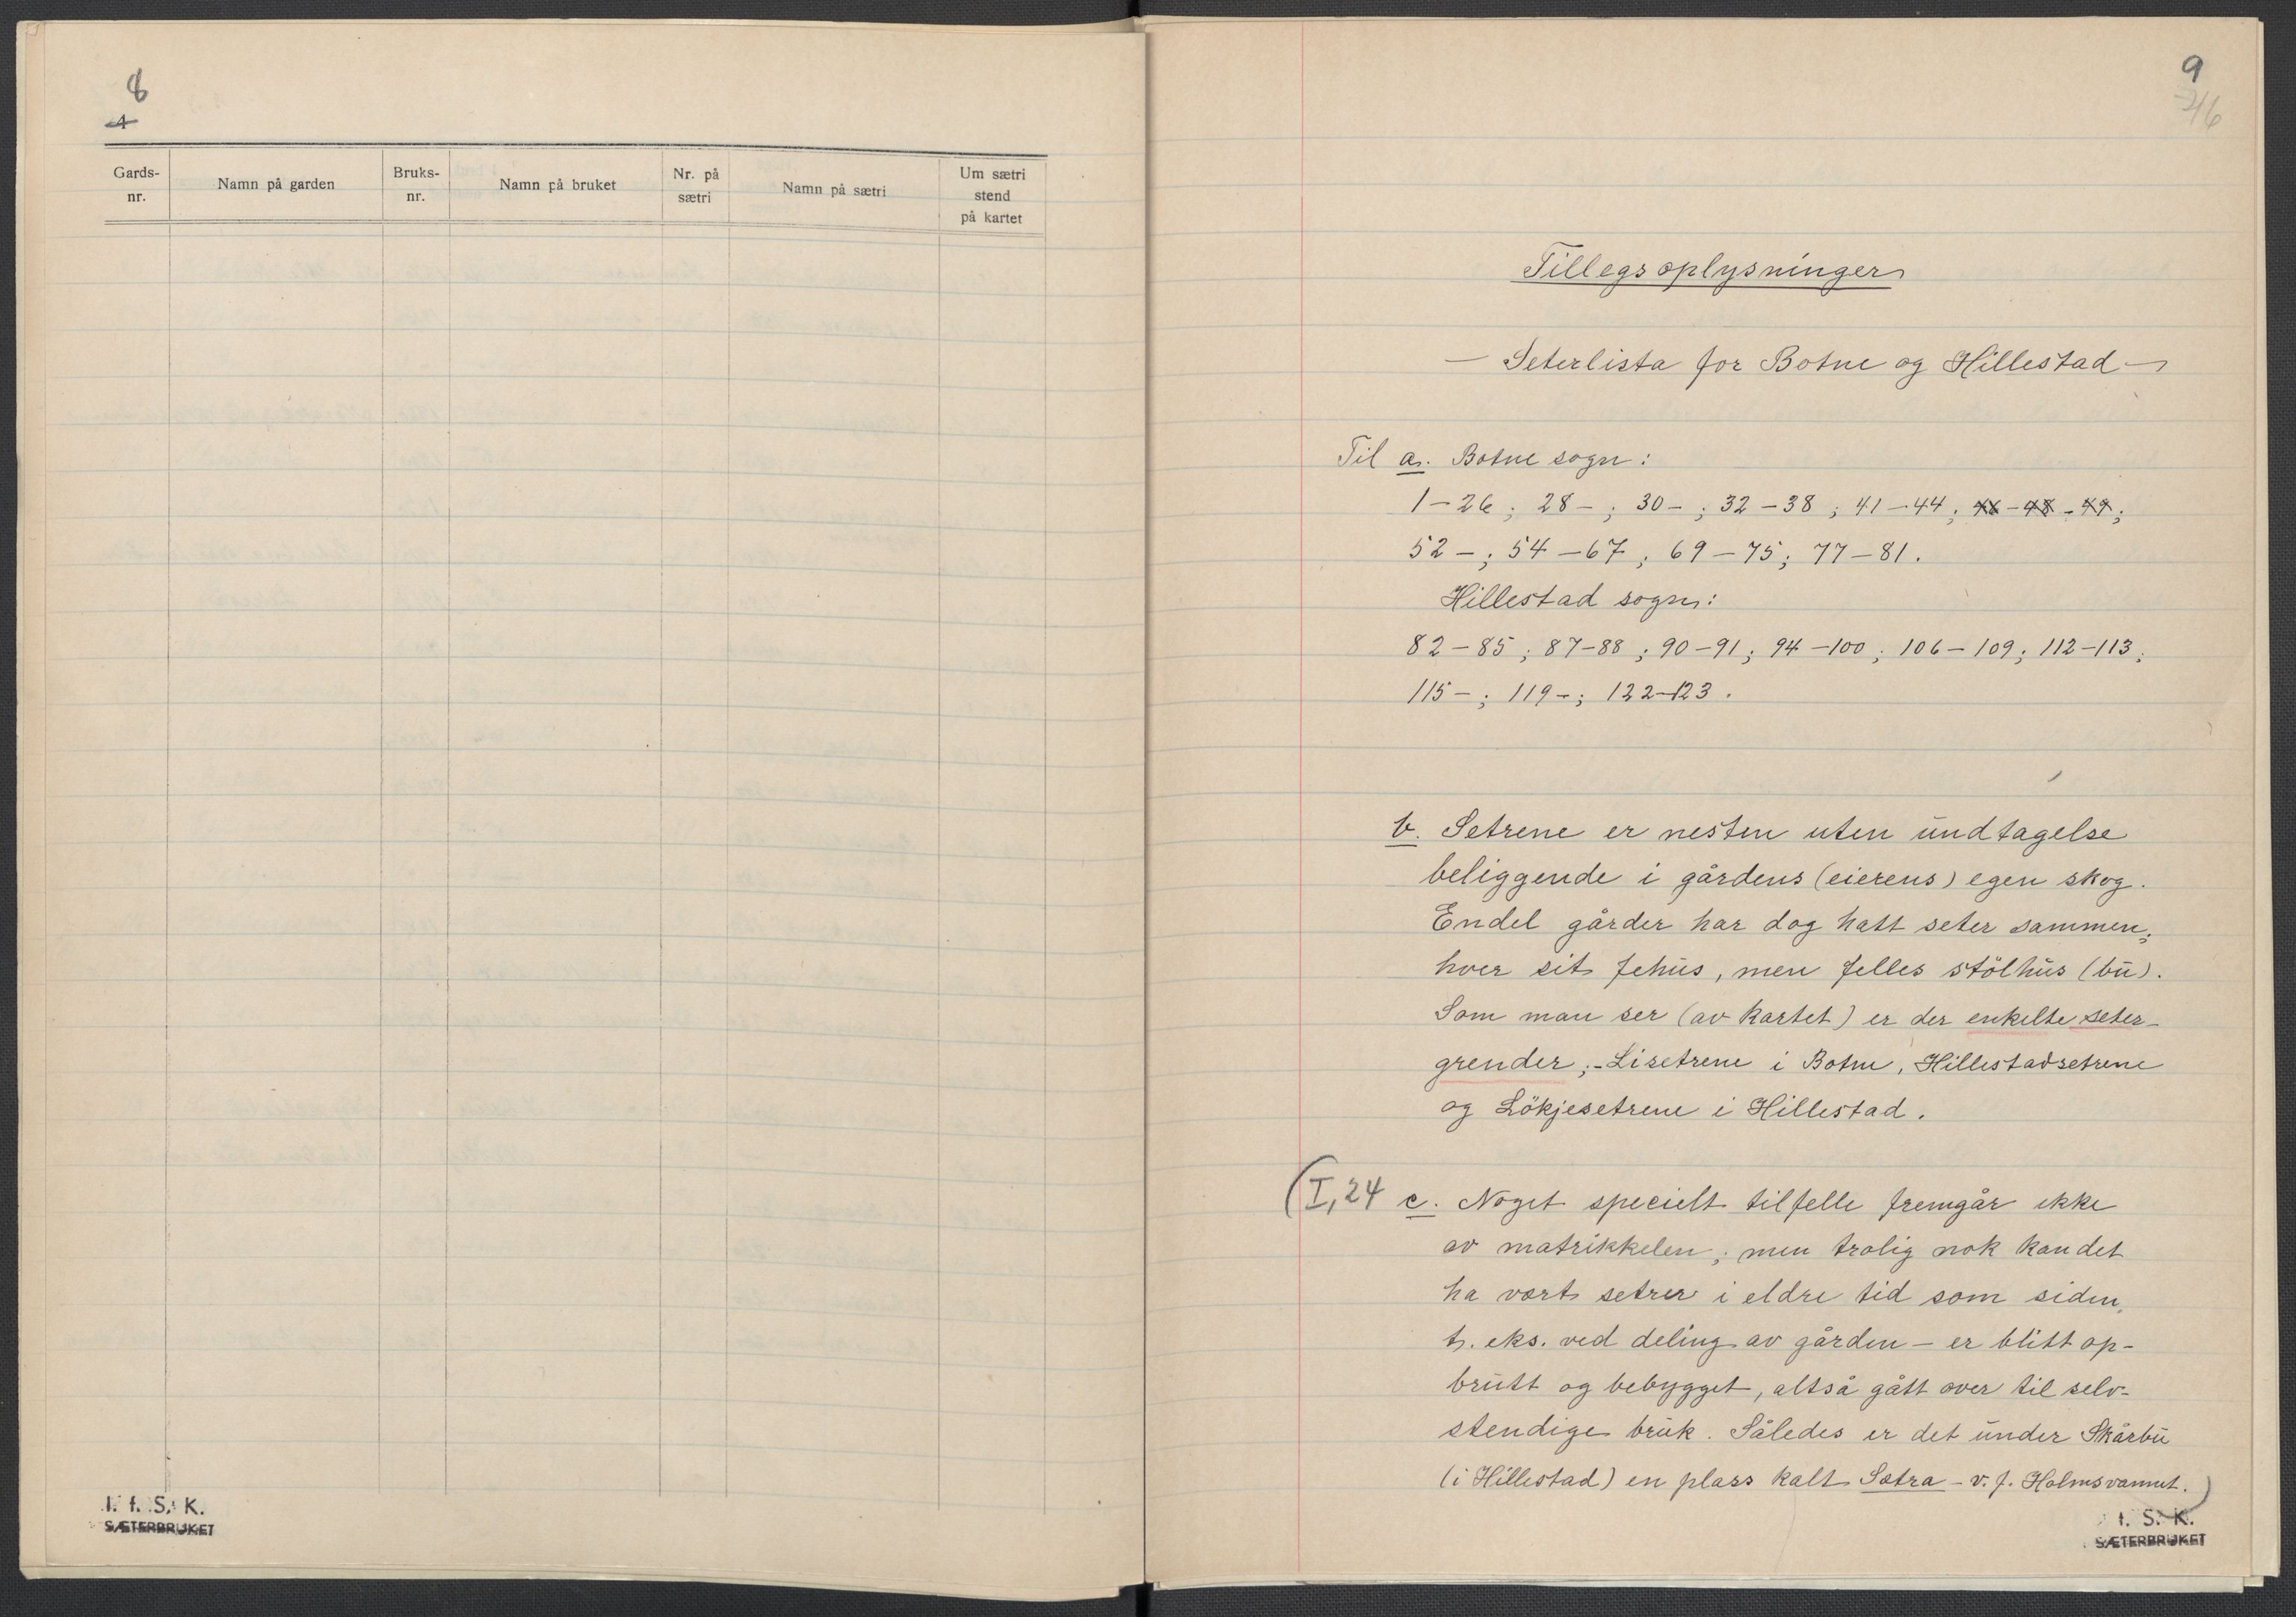 8
4
Gards-
nr.
Namn på garden
Bruks-
nr.
Namn på bruket
Nr. på
sætri
Namn på sætri
Um sætri
stend
på kartet
I. f. S. K.
SÆTERBRUKET
9
Tillegsoplysninger
— Seterlista for Botne og Hillestad —
Til a. Botne sogn:
1–26; 28–; 30–; 32–38; 41–44; 46–48–49;
52–; 54–67; 69–75; 77–81.
Hillestad sogn:
82–85; 87–88; 90–91; 94–100; 106–109; 112–113;
115–; 119–; 122–123.
b. Setrene er nesten uten undtagelse
beliggende i gårdens (eierens) egen skog.
Endel gårder har dog hatt seter sammen;
hver sit fehus, men felles stölhus (bu).
Som man ser (av kartet) er der enkelte seter-
grender; - Lisetrene i Botne, Hillestadsetrene
og Lökjesetrene i Hillestad.
(I, 24 c. Noget specielt tilfelle fremgår ikke
av matrikkelen; men trolig nok kan det
ha vært setrer i eldre tid som siden,
t. eks. ved deling av gården – er blitt op-
brutt og bebygget, altså gått over til selv-
stendige bruk. Således er det under Skårbu
(i Hillestad) en plass kalt Sætra – v. f. Holmsvannet.)
f. S. K.
SÆTERBRUKET